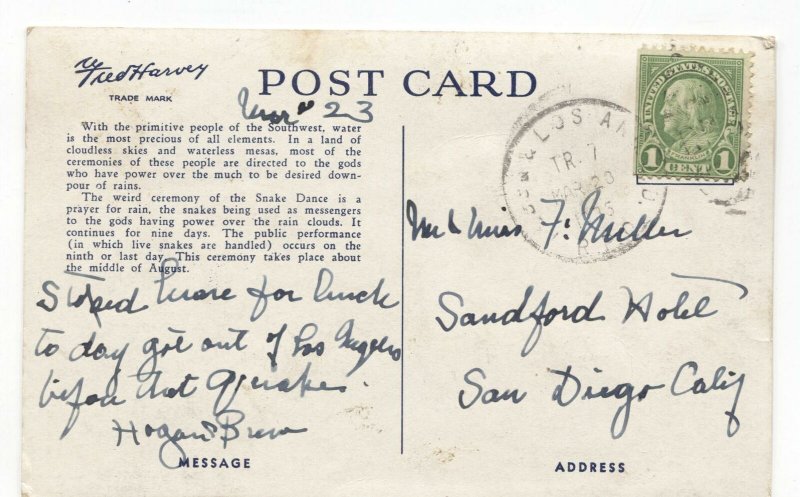 Fred Harvey
TRADE MARK
POST CARD
Mar 23
With the primitive people of the Southwest, water
is the most precious of all elements. In a land of
cloudless skies and waterless mesas, most of the
ceremonies of these people are directed to the gods
who have power over the much to be desired down-
pour of rains.
The weird ceremony of the Snake Dance is a
prayer for rain, the snakes being used as messengers
to the gods having power over the rain clouds. It
continues for nine days. The public performance
(in which live snakes are handled) occurs on the
ninth or last day. This ceremony takes place about
the middle of August.
Stoped heare for lunch
to day got out of Los Angeles
befor that Qquakes.
Hogan
MESSAGE
UNITED STATES POSTAGE
FRANKLIN
1 CENT 1
& LOS AN
TR. 7
MAR 23
R.
Mr & Miss F. Miller
Sandford Hotel
San Diego Calif
ADDRESS